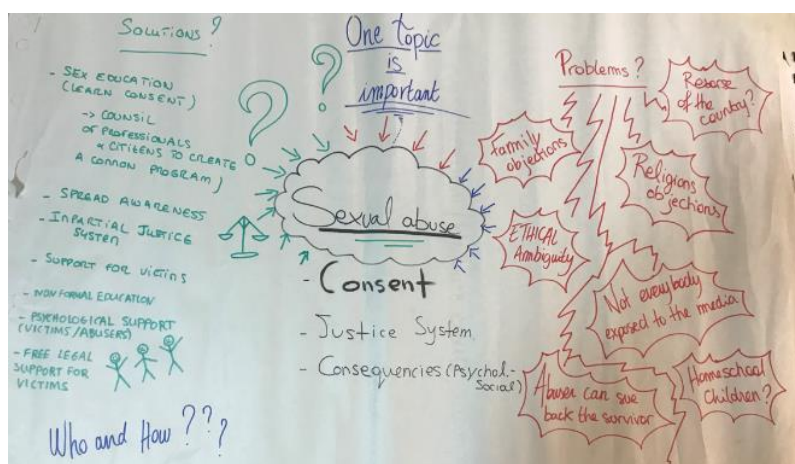 Solutions?
- SEX EDUCATION
(LEARN CONSENT)
-> COUNSIL
OF PROFESSIONALS
& CITIZENS TO CREATE
A COMMON PROGRAM)
- SPREAD AWARENESS
- IMPARTIAL JUSTICE
SYSTEM
- SUPPORT FOR VICTIMS
- NON FORMAL EDUCATION
- PSYCHOLOGICAL SUPPORT
(VICTIMS/ABUSERS)
- FREE LEGAL
SUPPORT FOR
VICTIMS
Who and How ???
? ?
One topic
is
important
Sexual abuse
- Consent
- Justice System
- Consequencies (Psychol.-
Social)
Problems?
family
objections
Religions
objections
ETHICAL
Ambiguity
of the
country?
Not everybody
exposed to the media
Abuser can sue
back the survivor
Homeschool
Children?